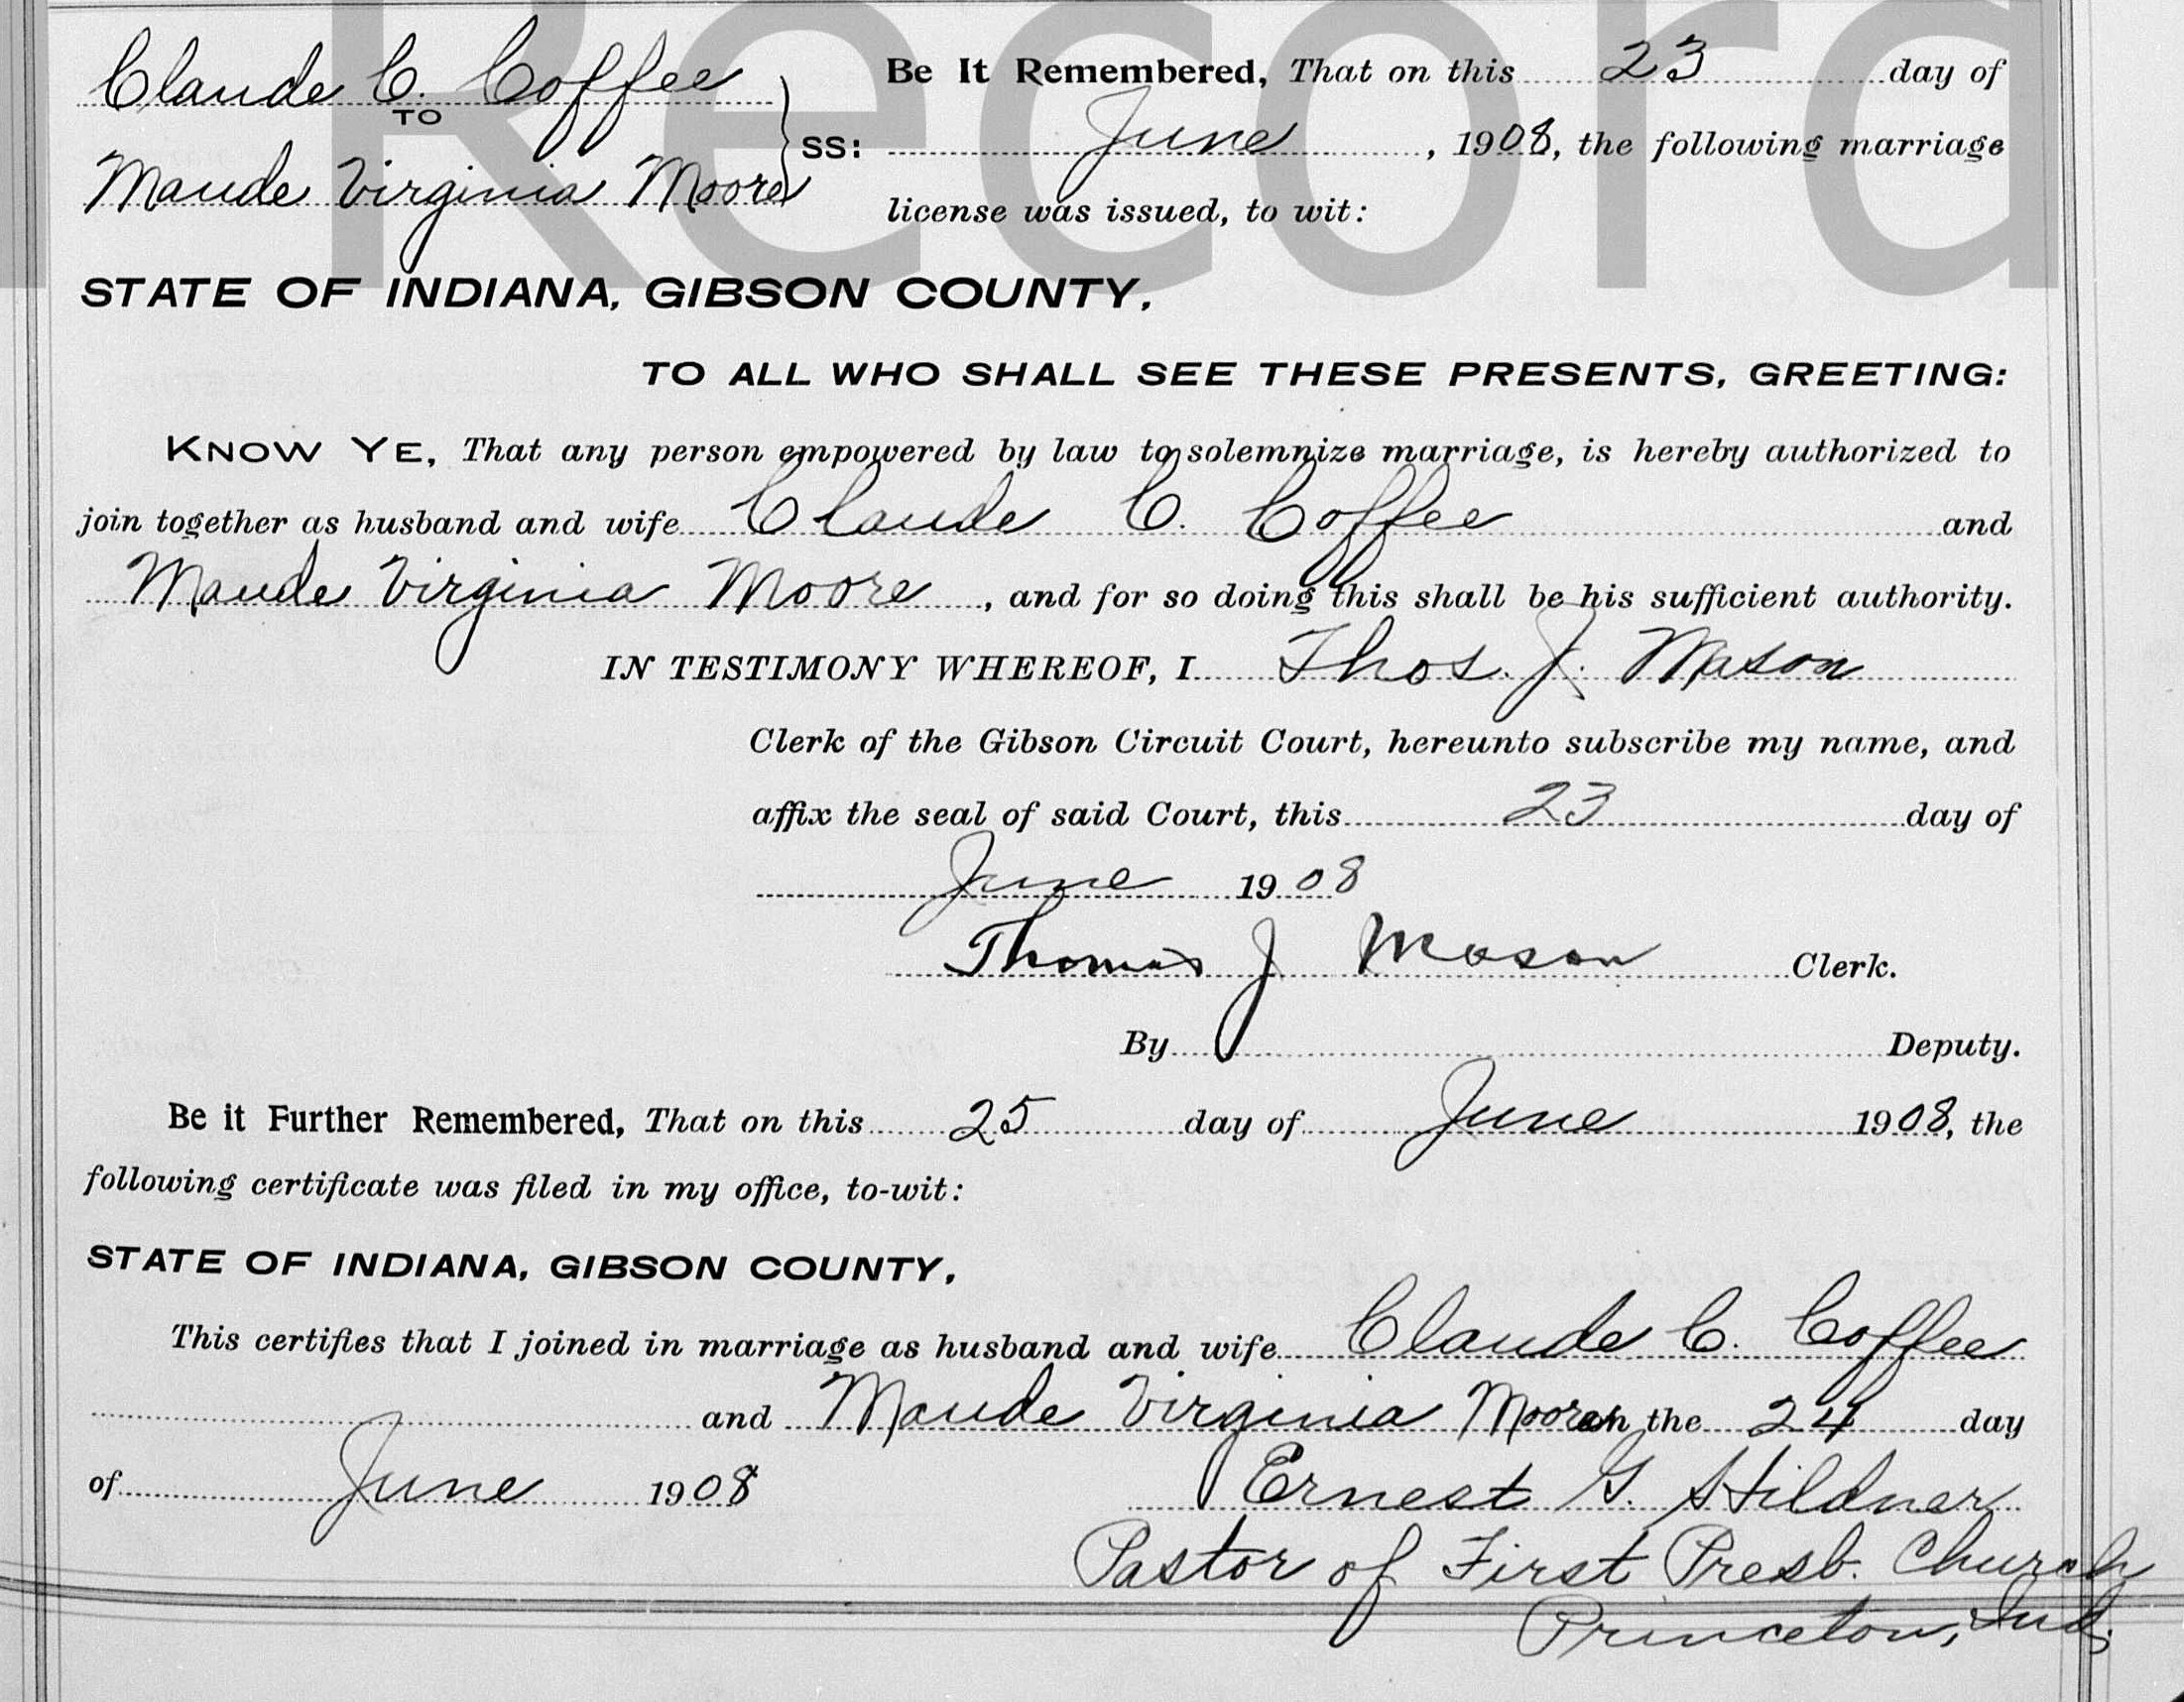 Record
Claude C. Coffee
TO
Maude Virginia Moore
SS:
Be It Remembered, That on this 23 day of
June, 1908, the following marriage
license was issued, to wit:
STATE OF INDIANA, GIBSON COUNTY,
TO ALL WHO SHALL SEE THESE PRESENTS, GREETING:
KNOW YE, That any person empowered by law to solemnize marriage, is hereby authorized to
join together as husband and wife Claude C. Coffee and
Maude Virginia Moore, and for so doing this shall be his sufficient authority.
IN TESTIMONY WHEREOF, I Thos. J. Mason
Clerk of the Gibson Circuit Court, hereunto subscribe my name, and
affix the seal of said Court, this 23 day of
June 1908
Thomas J Mason Clerk.
By Deputy.
Be it Further Remembered, That on this 25 day of June 1908, the
following certificate was filed in my office, to-wit:
STATE OF INDIANA, GIBSON COUNTY,
This certifies that I joined in marriage as husband and wife Claude C. Coffee
and Maude Virginia Moore on the 24 day
of June 1908
Ernest G. Hildner
Pastor of First Presb. Church
Princeton, Ind.